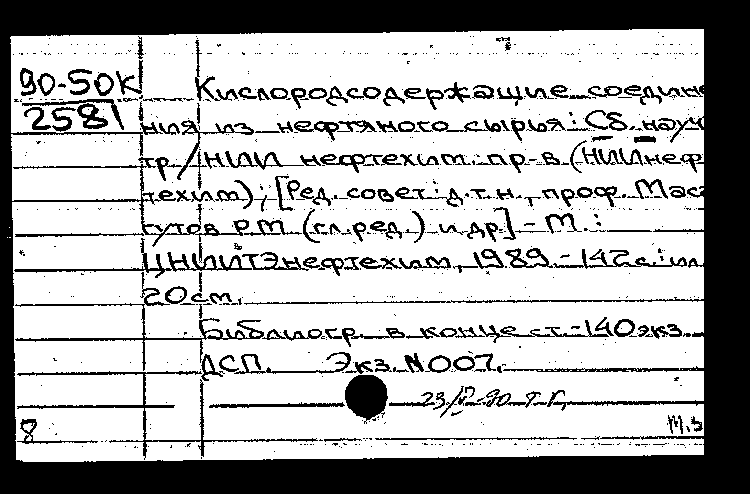 90-50К Кислородсодержащие соедине
2581 ния из нефтяного сырья: Сб. науч
тр/НИИ нефтехим. пр-в (НИИнеф
техим); [Ред. совет: д.т.н., проф. Мас
гутов Р.М (гл.ред.) и др.] - М.:
ЦНИИТЭнефтехим, 1989. - 142с.: ил
20см.
Библиогр. в конце ст. - 140экз
ДСП. Экз. N007.
23/VI-90 Т.Г.
8